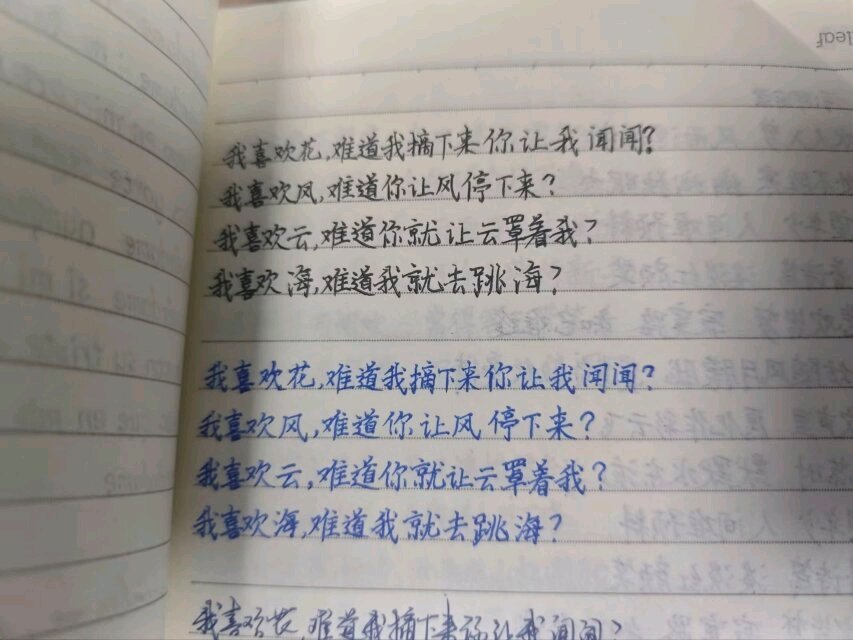 我喜欢花,难道我摘下来你让我闻闻?
我喜欢风,难道你让风停下来?
我喜欢云,难道你就让云罩着我?
我喜欢海,难道我就去跳海?
我喜欢花,难道我摘下来你让我闻闻?
我喜欢风,难道你让风停下来?
我喜欢云,难道你就让云罩着我?
我喜欢海,难道我就去跳海?
我喜欢花,难道我摘下来你让我闻闻?